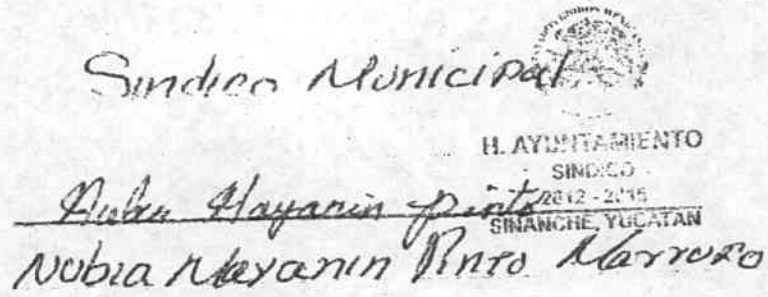 ESTADOS UNIDOS MEXICANOS
Sindico Municipal
H. AYUNTAMIENTO
SINDICO
2012 - 2015
SINANCHE, YUCATAN
Nubia Mayanin Pinto
Nubia Mayanin Pinto Marrufo